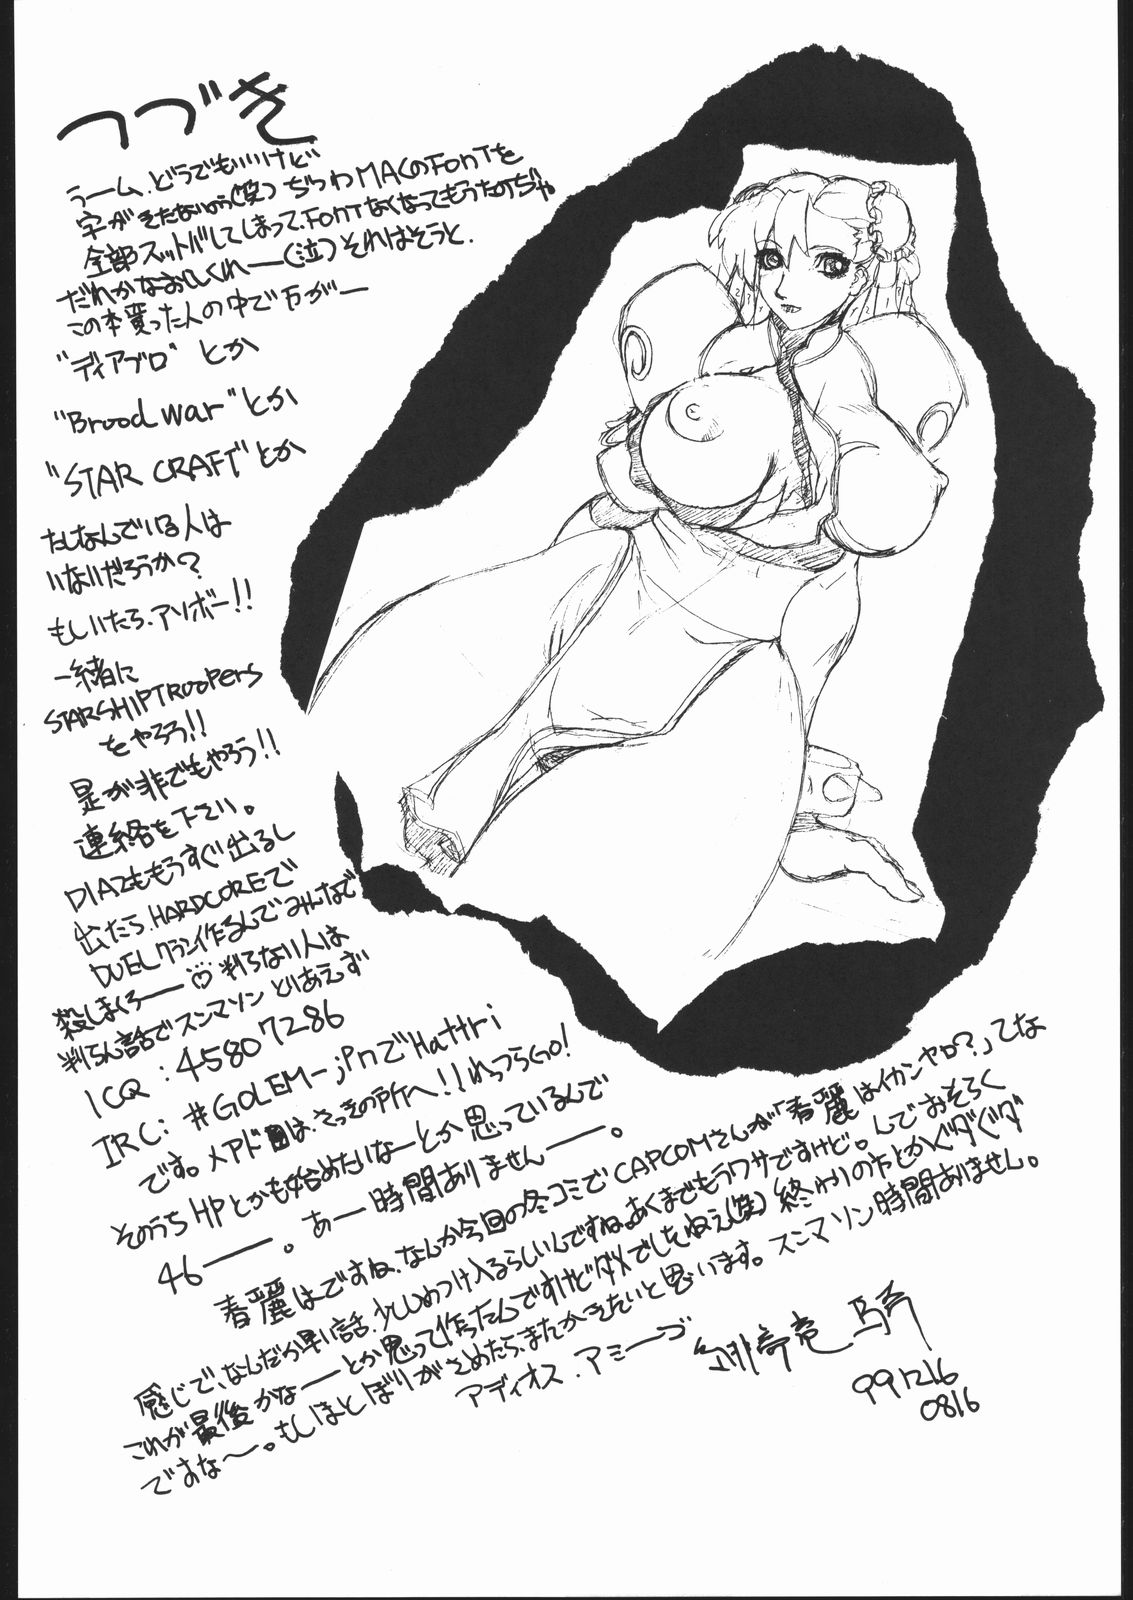 つづき
うーム、どうでもいいけど
字がきたないのう(笑)ぢつわMACのFONTを
全部スットバしてしまって、FONTなくなってもうたのぢゃ
だれかなおしてくれー(泣)それはそうと、
この本買った人の中で万がー
"ディアブロ"とか
"Brood war"とか
"STAR CRAFT"とか
たしなんでいる人は
いないだろうか?
もしいたら、アソボー!!
一緒に
STARSHIPTRoopers
をやろう!!
是が非でもやろう!!
連絡を下さい。
DIA2ももうすぐ出るし
出たら、HARDCOREで
DUELクラン作るんでみんなで
殺しまくろー♡判らない人は
判らん話でスンマソンとりあえず
ICQ:45807286
IRC:#GOLEM-jPnでHattri
です。メアドは、さっきの所へ!!れっつらGO!
そのうちHPとかも始めたいなーとか思っているんで
46ー。あー時間ありませんー。
春麗はですね、なんか今回の冬コミでCAPCOMさんが「春麗はイカンヤロ?」てな
感じで、なんだか早い話、少ししめつけ入るらしいんですね。あくまでもうワサですけど。んでおそらく
これが最後かなーとか思って作ったんですけどダメでしたねえ(笑)終わりの方とかぐダぐダ
ですな〜。もしほとぼりがさめたら、またかきたいと思います。スンマソン時間ありません。
アディオス.アミーゴ
991216
0816